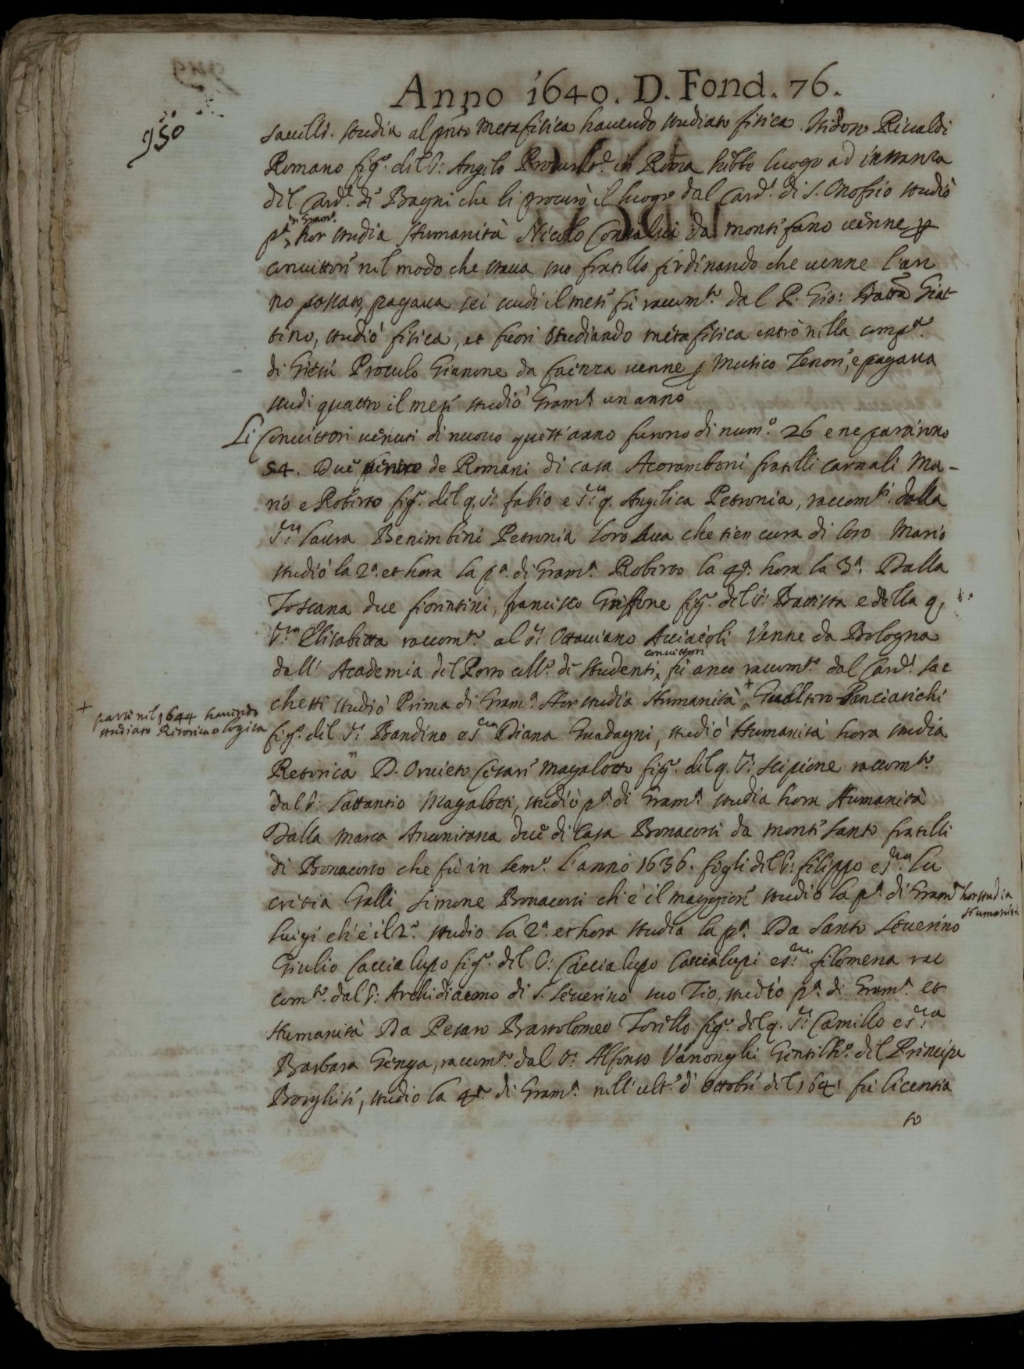 950
Anno 1640. D. Fond. 76.
Savelli. studia al pnte Metafisica havendo studiato fisica. Rivaldi
Romano figº. del Sr. Angelo in Roma hebbe luogo ad instanza
del Card. di Bagni che li procurò il luogo dal Card. di S. Onofrio studiò
di Gramª.
pª hor studia Humanità Nicolo Consalvi da monte fano venne p
convittore nel modo che stava suo fratello ferdinando che venne l'an
no passato, pagava sei scudi il mese fù raccomto. dal P. Gio: Batta Giat
tino, studiò fisica, et fuori studiando metafisica entrò nella compª.
di Giesù Proculo Gianone da faenza venne p Musico Tenore, e pagava
scudi quattro il mese studiò Gramª un anno
Li Convittori venuti di nuovo quest'anno furono di numº. 26 e ne partirono
54. Due de Romani di casa Acoramboni fratelli carnali Ma-
rio e Roberto figº. del q. Sr. fabio e Srª q. Angelica Petronia, raccomti. dalla
Srª Laura Benimbeni Petronia loro Ava che tien cura di loro Mario
studiò la 2ª. et hora la pª. di Gramª. Roberto la 4ª. hora la 3ª. Dalla
Toscana due fiorentini, francisco Griffone figº. del Sr. Battista e della q.
Srª Elisabetta raccomto. al Sr. Ottaviano Acciaioli Venne da Bologna
convittori
dall' Academia del Porto collº. de studenti, fù anco raccomto. dal Card. Sac
chetti studiò Prima di Gramª. Hor studia Humanità + Gualtero Panciatichi
+ partì nel 1644 havendo
studiato Ritorica e logica
figº. del Sr. Bandino e Srª Diana Guadagni, studiò Humanità hora studia
Retorica D. Orvieto Cesare Magalotto figº. del q. Sr. Scipione raccomto.
dal Sr. Lattantio Magalotti, studiò pª. di Gramª studia hora Humanità
Dalla Marca Anconitana due di Casa Bonacorsi da monte santo fratelli
di Bonacorso che fù in Semº. l'anno 1636. figli del Sr. filippo e Srª Lu
cretia Galli, Simone Bonacorsi ch'è il maggiore studiò la pª. di Gramª hor studia
Humanità
Luigi ch'è il 2º. studio la 2ª. et hora studia la pª. Da Santo Severino
Giulio Caccialupo figº. del Sr. Caccialupo Caccialupi e Srª. filomena rac
comto. dal Sr. Archidiacono di S. Severino suo Tio, studiò pª. di Gramª. et
Humanità Da Pesaro Bartolomeo Torello figº. del q. Sr. Camillo e Srª
Barbara Genga, raccomto. dal Sr. Alfonso Gentilhº. del Principe
Borghese, studio la 4ª. di Gramª. nell'ultº. d'ottobre del 1641 fù licentia
to